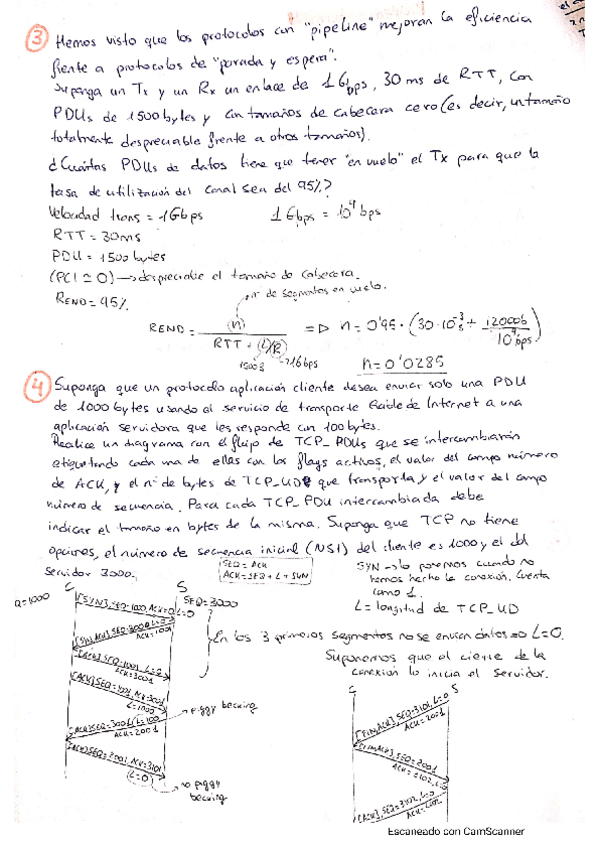 ③ Hemos visto que los protocolos con "pipeline" mejoran la eficiencia
frente a protocolos de "parada y espera".
Suponga un Tx y un Rx un enlace de 1 Gbps, 30 ms de RTT, con
PDUs de 1500 bytes y con tamaños de cabecera cero (es decir, un tamaño
totalmente despreciable frente a otros tamaños).
¿Cuántas PDUs de datos tiene que tener "en vuelo" el Tx para que la
tasa de utilización del canal sea del 95%?
Velocidad trans = 1Gbps 1 Gbps = 10^9 bps
RTT = 30ms
PDU = 1500 bytes
(PCI ≃ 0) → despreciable el tamaño de cabecera.
REND = 95%
nº de segmentos en vuelo.
REND = (n) / (RTT + (L/R)) => n = 0'95 · (30·10^-3 s + 12000b / 10^9 bps)
1500B 1Gbps
n = 0'0285
④ Suponga que un protocolo aplicación cliente desea enviar solo una PDU
de 1000 bytes usando el servicio de transporte fiable de Internet a una
aplicación servidora que les responde con 100 bytes.
Realice un diagrama con el flujo de TCP_PDUs que se intercambiarán
etiquetando cada una de ellas con los flags activos, el valor del campo número
de ACK, y el nº de bytes de TCP_UD que transporta y el valor del campo
número de secuencia. Para cada TCP_PDU intercambiada debe
indicar el tamaño en bytes de la misma. Suponga que TCP no tiene
opciones, el número de secuencia inicial (NSI) del cliente es 1000 y el del
servidor 3000.
SEQ = ACK
ACK = SEQ + L + SYN
SYN → lo ponemos cuando no
hemos hecho la conexión. Cuenta
como 1.
L = longitud de TCP_UD
C S
Q=1000 SEQ=3000
[SYN], SEQ=1000, ACK=0, L=0
[SYN, ACK], SEQ=3000, L=0
ACK=1001
[ACK], SEQ=1001, L=0
ACK=3001
[ACK], SEQ=1001, ACK=3001
L=1000
[ACK] SEQ=3001, L=100
ACK=2001
[ACK] SEQ=2001, ACK=3101
(L=0)
En los 3 primeros segmentos no se envían datos => L=0.
→ piggy backing
→ no piggy
backing
Suponemos que el cierre de la
conexión lo inicia el servidor.
C S
[Fin, ACK], SEQ=3101, L=0
ACK=2001
[Fin, ACK], SEQ=2001
ACK=3102, L=0
[ACK], SEQ=3102, L=0
Escaneado con CamScanner